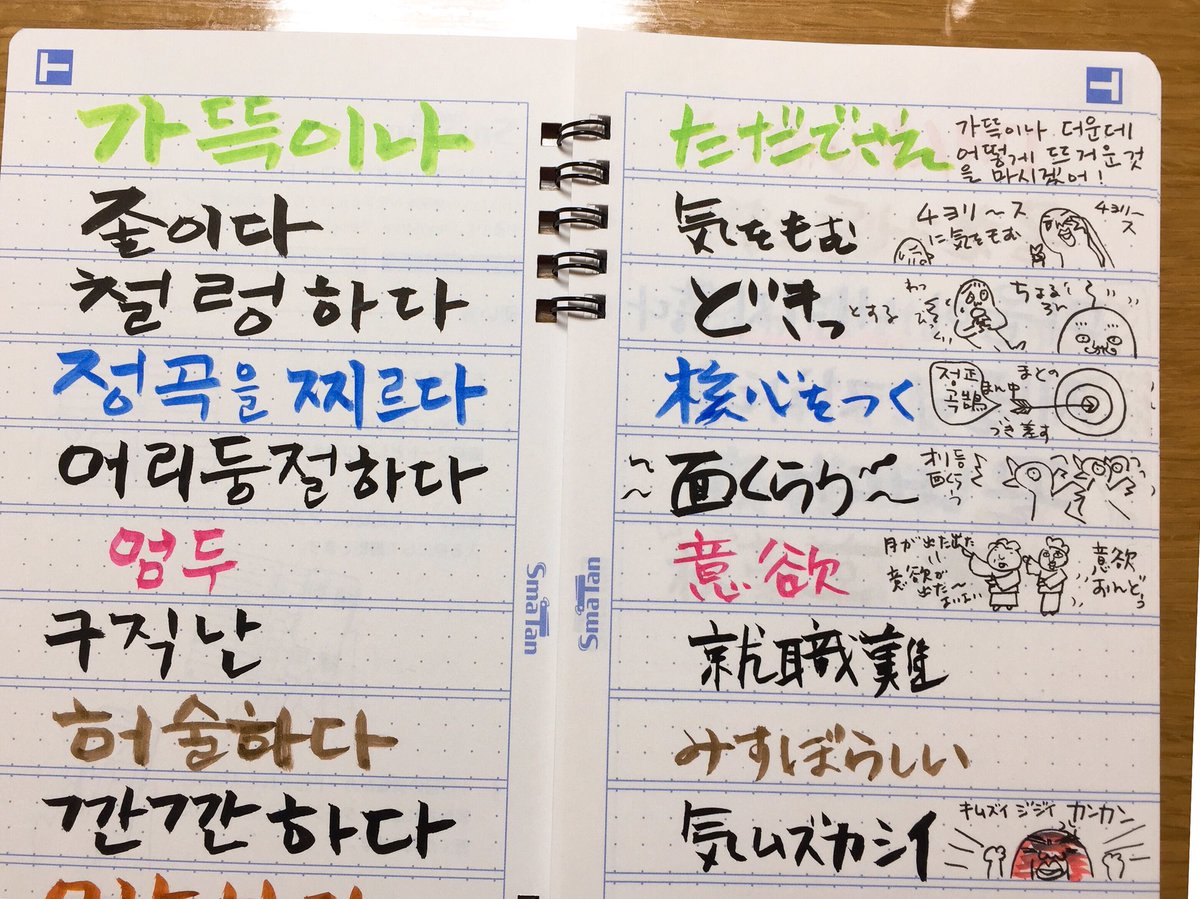 가뜩이나
ただでさえ
가뜩이나 더운데
어떻게 뜨거운것
을 마시겠어!
졸이다
気をもむ
チョリ〜ス
に気をもむ
チョリ〜
ス
철렁하다
どきっとする
わっ
びっくり
ちょろり
정곡을 찌르다
核心をつく
정正
곡鵠
まとの
まん中
つき差す
어리둥절하다
面くらう
オリ等
面くらう
엄두
意欲
月が出た出た
意欲が
出た〜
よいよい
意欲
おんどう
구직난
就職難
허술하다
みすぼらしい
깐깐하다
気ムズカシイ
キムズイ ジジイ カンカン
SmaTan
SmaTan